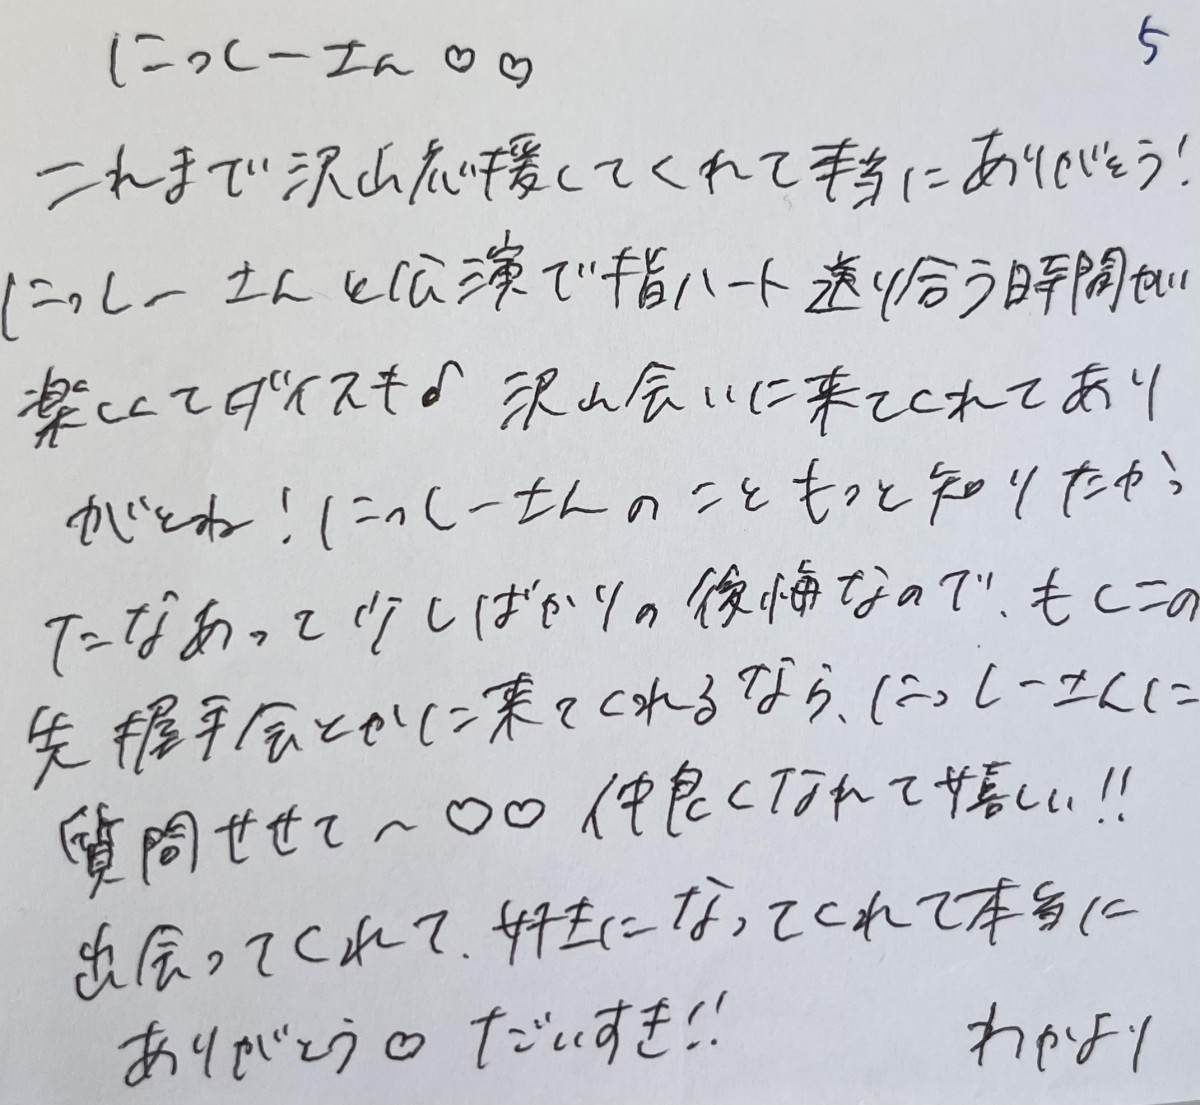 にっしーさん♡♡
5
これまで沢山応援してくれて本当にありがとう!
にっしーさんと公演で指ハート送り合う時間が
楽しくてダイスキ♪ 沢山会いに来てくれてあり
がとね!にっしーさんのこともっと知りたかっ
たなあって少しばかりの後悔なので、もしこの
先握手会とかに来てくれるなら、にっしーさんに
質問させて〜♡♡ 仲良くなれて嬉しい!!
出会ってくれて、好きになってくれて本当に
ありがとう♡ だいすき!! わかより